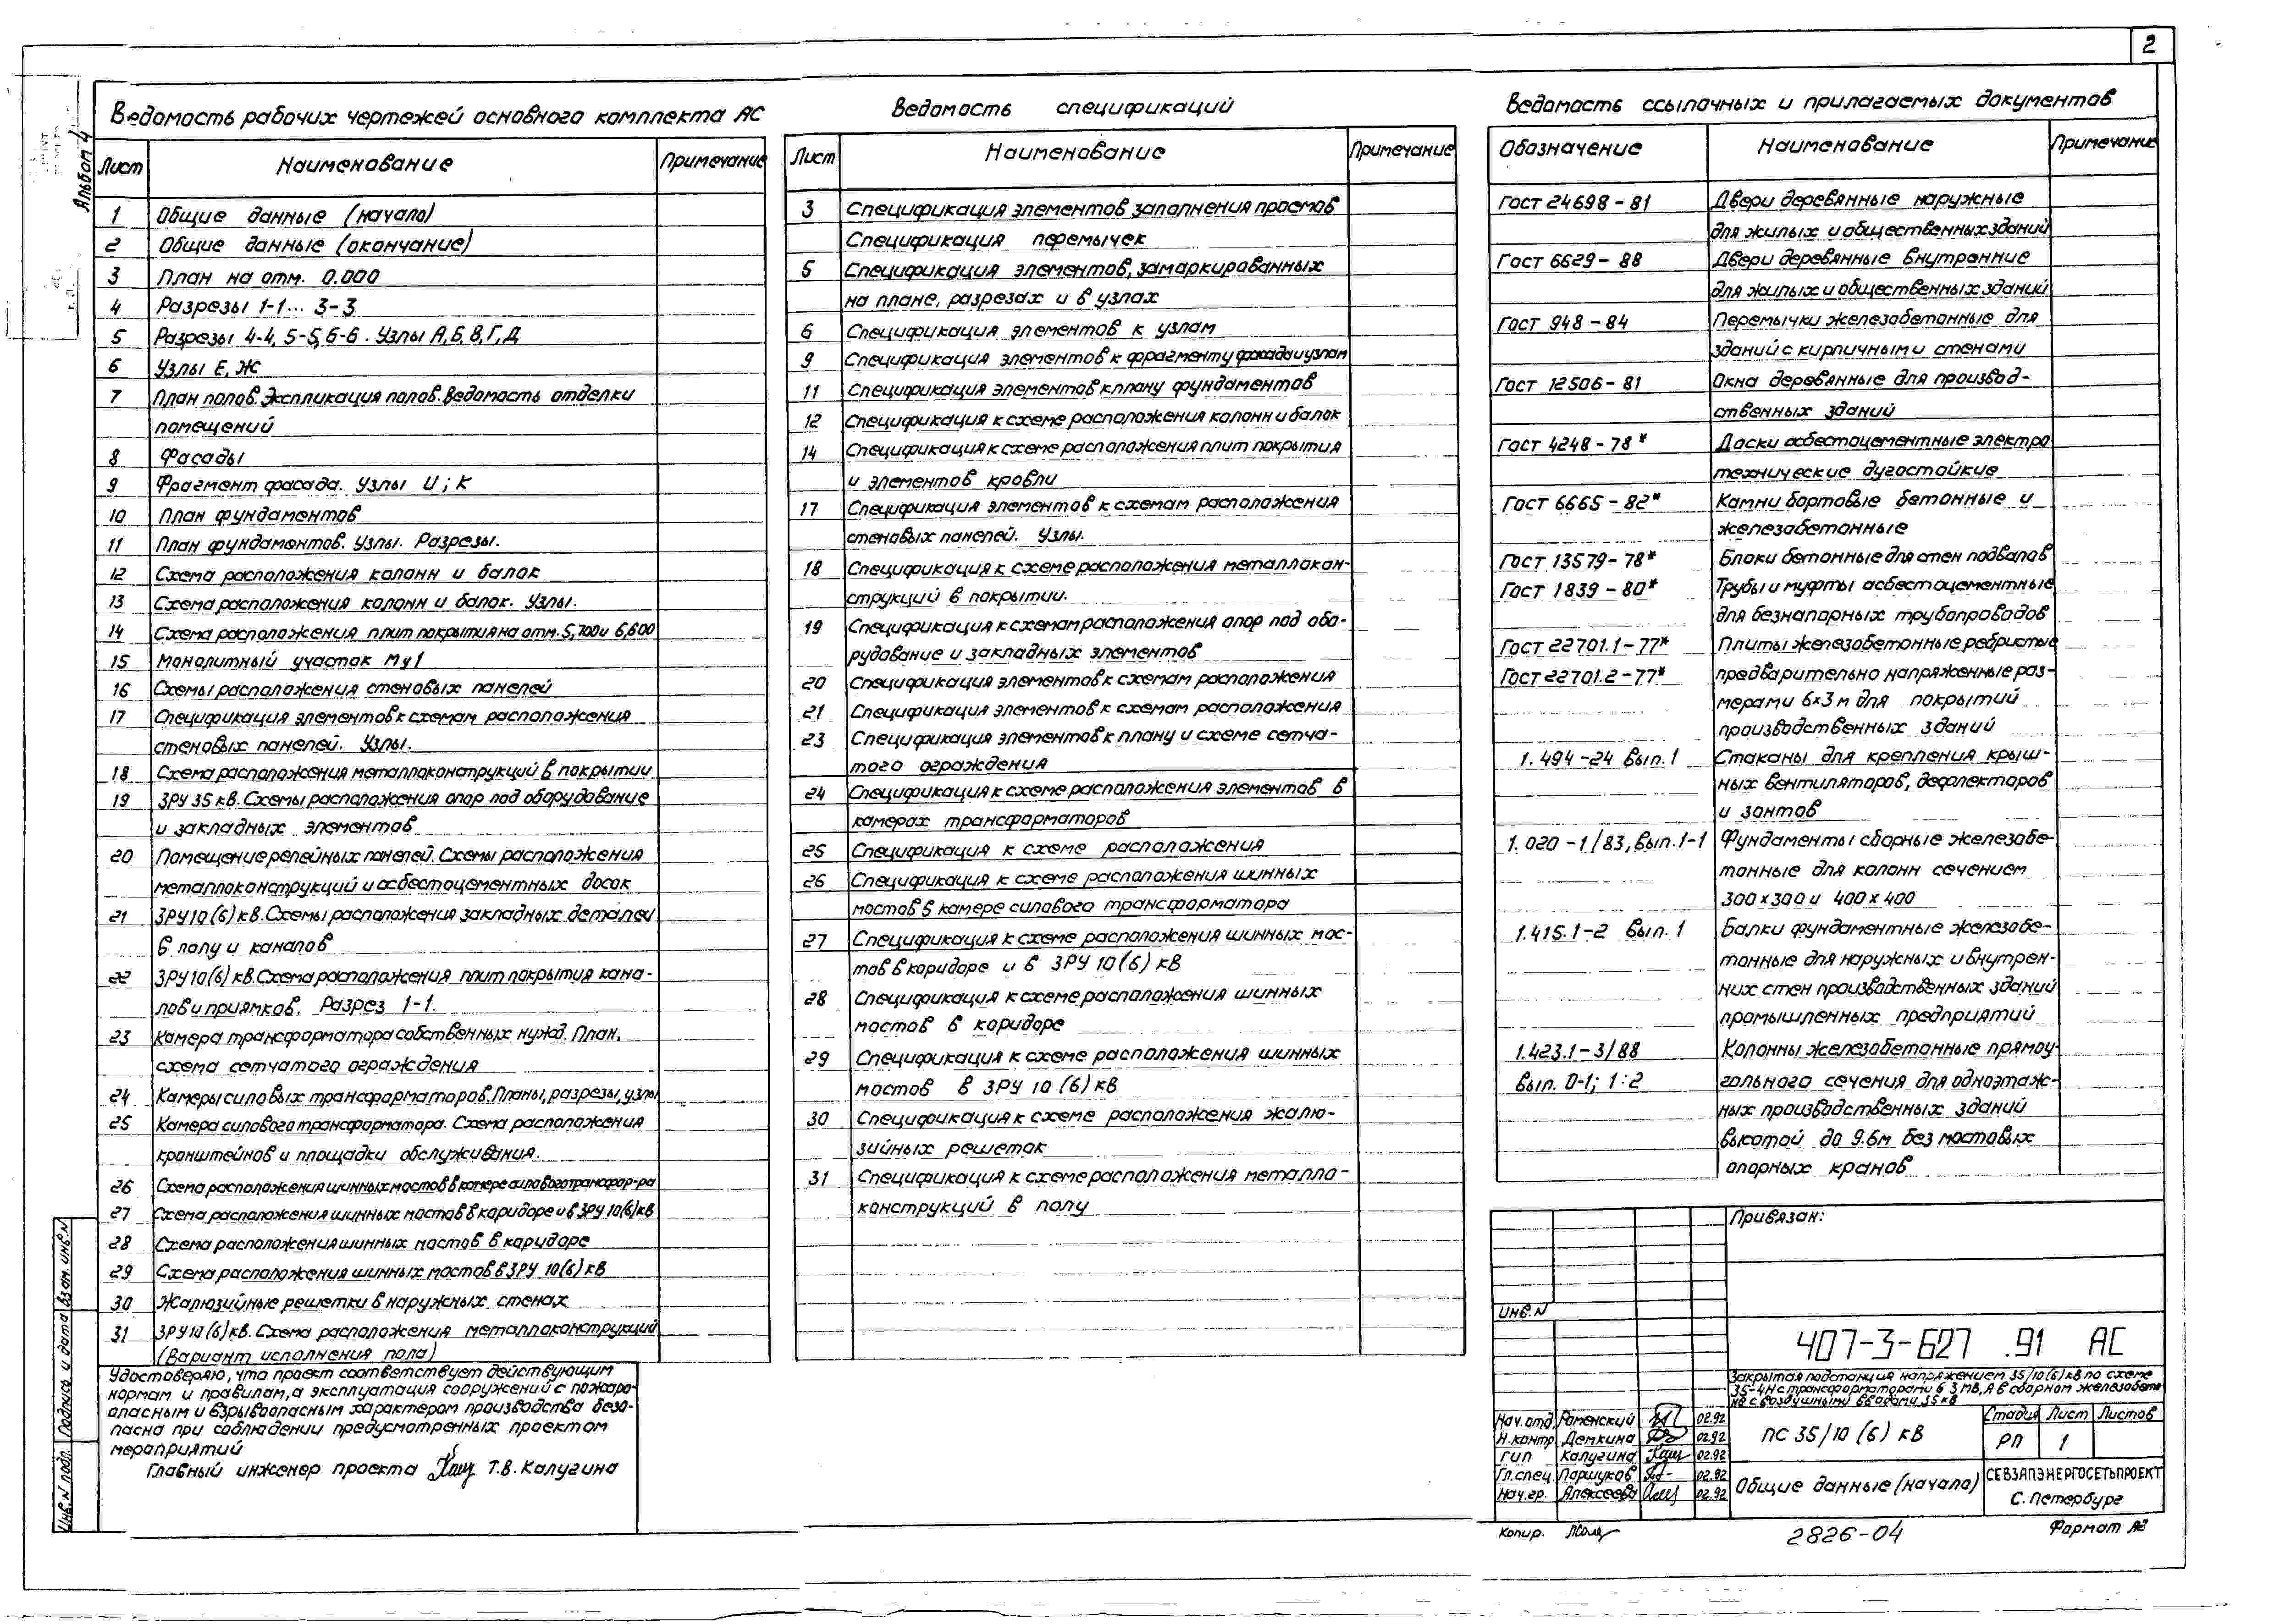 2
Альбом 4
Ведомость рабочих чертежей основного комплекта АС
Лист Наименование Примечание
1 Общие данные (начало)
2 Общие данные (окончание)
3 План на отм. 0.000
4 Разрезы 1-1... 3-3
5 Разрезы 4-4, 5-5, 6-6. Узлы А, Б, В, Г, Д
6 Узлы Е, Ж
7 План полов. Экспликация полов. Ведомость отделки
помещений
8 Фасады
9 Фрагмент фасада. Узлы И; К
10 План фундаментов
11 План фундаментов. Узлы. Разрезы.
12 Схема расположения колонн и балок
13 Схема расположения колонн и балок. Узлы.
14 Схема расположения плит покрытия на отм. 5,700 и 6,600
15 Монолитный участок Му1
16 Схемы расположения стеновых панелей
17 Спецификация элементов к схемам расположения
стеновых панелей. Узлы.
18 Схема расположения металлоконструкций в покрытии
19 ЗРУ 35 кв. Схемы расположения опор под оборудование
и закладных элементов
20 Помещение релейных панелей. Схемы расположения
металлоконструкций и асбестоцементных досок
21 ЗРУ 10 (6) кв. Схемы расположения закладных деталей
в полу и каналов
22 ЗРУ 10 (6) кв. Схема расположения плит покрытия кана-
лов и приямков. Разрез 1-1.
23 Камера трансформатора собственных нужд. План,
схема сетчатого ограждения
24 Камеры силовых трансформаторов. Планы, разрезы, узлы
25 Камера силового трансформатора. Схема расположения
кронштейнов и площадки обслуживания.
26 Схема расположения шинных мостов в камере силового трансфор-ра
27 Схема расположения шинных мостов в коридоре и в ЗРУ 10(6)кв
28 Схема расположения шинных мостов в коридоре
29 Схема расположения шинных мостов в ЗРУ 10(6) кв
30 Жалюзийные решетки в наружных стенах
31 ЗРУ 10(6) кв. Схема расположения металлоконструкций
(Вариант исполнения пола)
Удостоверяю, что проект соответствует действующим
нормам и правилам, а эксплуатация сооружений с пожаро-
опасным и взрывоопасным характером производства безо-
пасна при соблюдении предусмотренных проектом
мероприятий
Главный инженер проекта Т.В. Калугина
Ведомость спецификаций
Лист Наименование Примечание
3 Спецификация элементов заполнения проемов
Спецификация перемычек
5 Спецификация элементов, замаркированных
на плане, разрезах и в узлах
6 Спецификация элементов к узлам
9 Спецификация элементов к фрагменту фасада и узлам
11 Спецификация элементов к плану фундаментов
12 Спецификация к схеме расположения колонн и балок
14 Спецификация к схеме расположения плит покрытия
и элементов кровли
17 Спецификация элементов к схемам расположения
стеновых панелей. Узлы.
18 Спецификация к схеме расположения металлокон-
струкций в покрытии.
19 Спецификация к схемам расположения опор под обо-
рудование и закладных элементов
20 Спецификация элементов к схемам расположения
21 Спецификация элементов к схемам расположения
23 Спецификация элементов к плану и схеме сетча-
того ограждения
24 Спецификация к схеме расположения элементов в
камерах трансформаторов
25 Спецификация к схеме расположения
26 Спецификация к схеме расположения шинных
мостов в камере силового трансформатора
27 Спецификация к схеме расположения шинных мос-
тов в коридоре и в ЗРУ 10(6) кв
28 Спецификация к схеме расположения шинных
мостов в коридоре
29 Спецификация к схеме расположения шинных
мостов в ЗРУ 10 (6) кв
30 Спецификация к схеме расположения жалю-
зийных решеток
31 Спецификация к схеме расположения металло-
конструкций в полу
Ведомость ссылочных и прилагаемых документов
Обозначение Наименование Примечание
Гост 24698-81 Двери деревянные наружные
для жилых и общественных зданий
Гост 6629-88 Двери деревянные внутренние
для жилых и общественных зданий
Гост 948-84 Перемычки железобетонные для
зданий с кирпичными стенами
Гост 12506-81 Окна деревянные для производ-
ственных зданий
Гост 4248-78* Доски асбестоцементные электро
технические дугостойкие
Гост 6665-82* Камни бортовые бетонные и
железобетонные
Гост 13579-78* Блоки бетонные для стен подвалов
Гост 1839-80* Трубы и муфты асбестоцементные
для безнапорных трубопроводов
Гост 22701.1-77* Плиты железобетонные ребристые
Гост 22701.2-77* предварительно напряженные раз-
мерами 6х3м для покрытий
производственных зданий
1.494-24 вып.1 Стаканы для крепления крыш-
ных вентиляторов, дефлекторов
и зонтов
1.020-1/83, вып.1-1 Фундаменты сборные железобе-
тонные для колонн сечением
300х300 и 400х400
1.415.1-2 вып. 1 Балки фундаментные железобе-
тонные для наружных и внутрен-
них стен производственных зданий
промышленных предприятий
1.423.1-3/88 Колонны железобетонные прямоу-
вып. 0-1; 1:2 гольного сечения для одноэтаж-
ных производственных зданий
высотой до 9.6м без мостовых
опорных кранов
Привязан:
Инв.N
407-3-627 .91 АС
Закрытая подстанция напряжением 35/10(6) кв по схеме
35-4Н с трансформаторами 6 3 МВ,А в сборном железобето
не с воздушными вводами 35 кв
Нач.отд. Роменский 02.92
Н.контр. Демкина 02.92
ГИП Калугина 02.92
Гл.спец. Паршуков 02.92
Нач.гр. Алексеева 02.92
ПС 35/10 (6) кВ
Стадия Лист Листов
РП 1
Общие данные (начало)
СЕВЗАПЭНЕРГОСЕТЬПРОЕКТ
С.Петербург
Копир.
2826-04
Формат А2
Инв.N подл. Подпись и дата Взам. инв.N